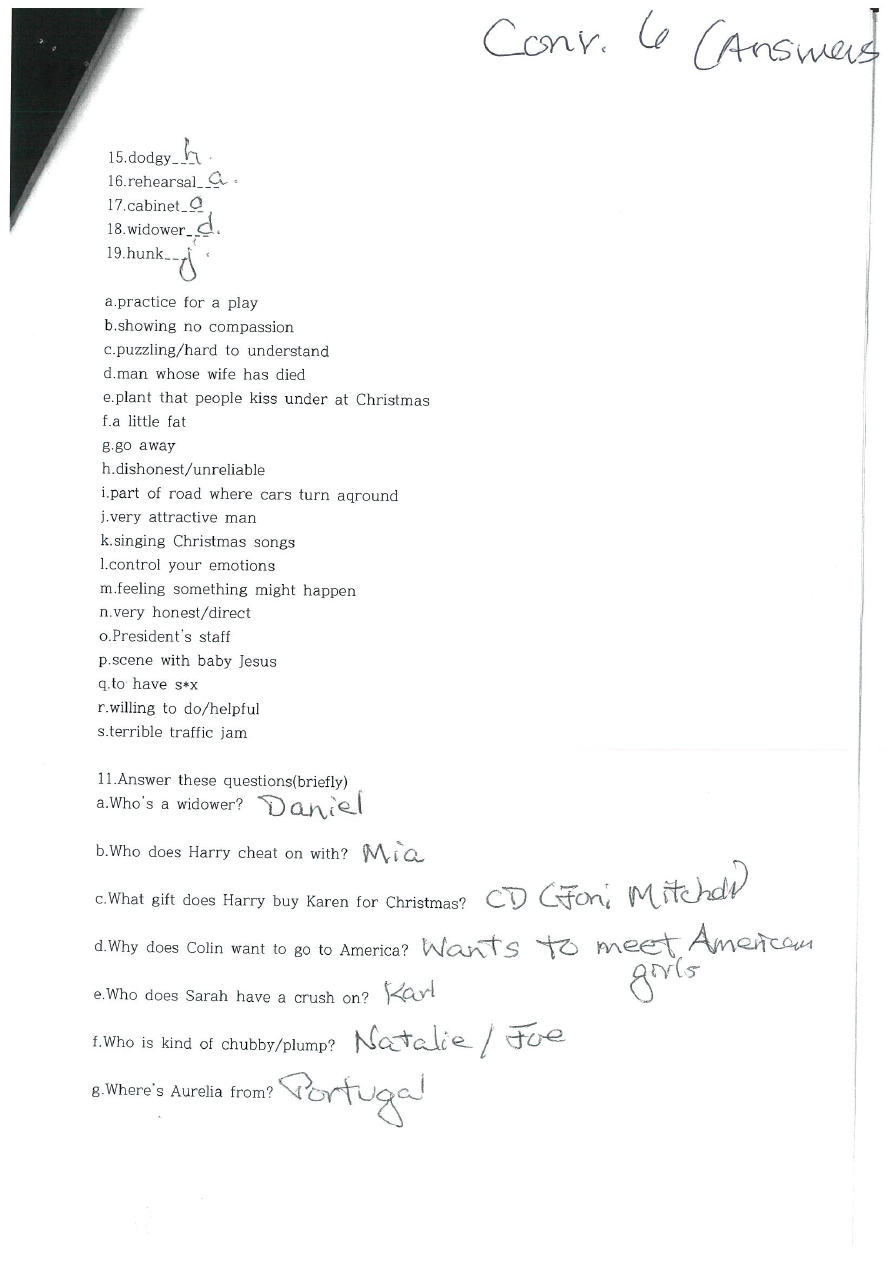 Conv. 6 (Answers
15.dodgy__h.
16.rehearsal__a.
17.cabinet_o
18.widower__d.
19.hunk__j.
a.practice for a play
b.showing no compassion
c.puzzling/hard to understand
d.man whose wife has died
e.plant that people kiss under at Christmas
f.a little fat
g.go away
h.dishonest/unreliable
i.part of road where cars turn aqround
j.very attractive man
k.singing Christmas songs
l.control your emotions
m.feeling something might happen
n.very honest/direct
o.President's staff
p.scene with baby Jesus
q.to have s*x
r.willing to do/helpful
s.terrible traffic jam
11.Answer these questions(briefly)
a.Who's a widower? Daniel
b.Who does Harry cheat on with? Mia
c.What gift does Harry buy Karen for Christmas? CD (Joni Mitchell)
d.Why does Colin want to go to America? Wants to meet American
girls
e.Who does Sarah have a crush on? Karl
f.Who is kind of chubby/plump? Natalie / Joe
g.Where's Aurelia from? Portugal